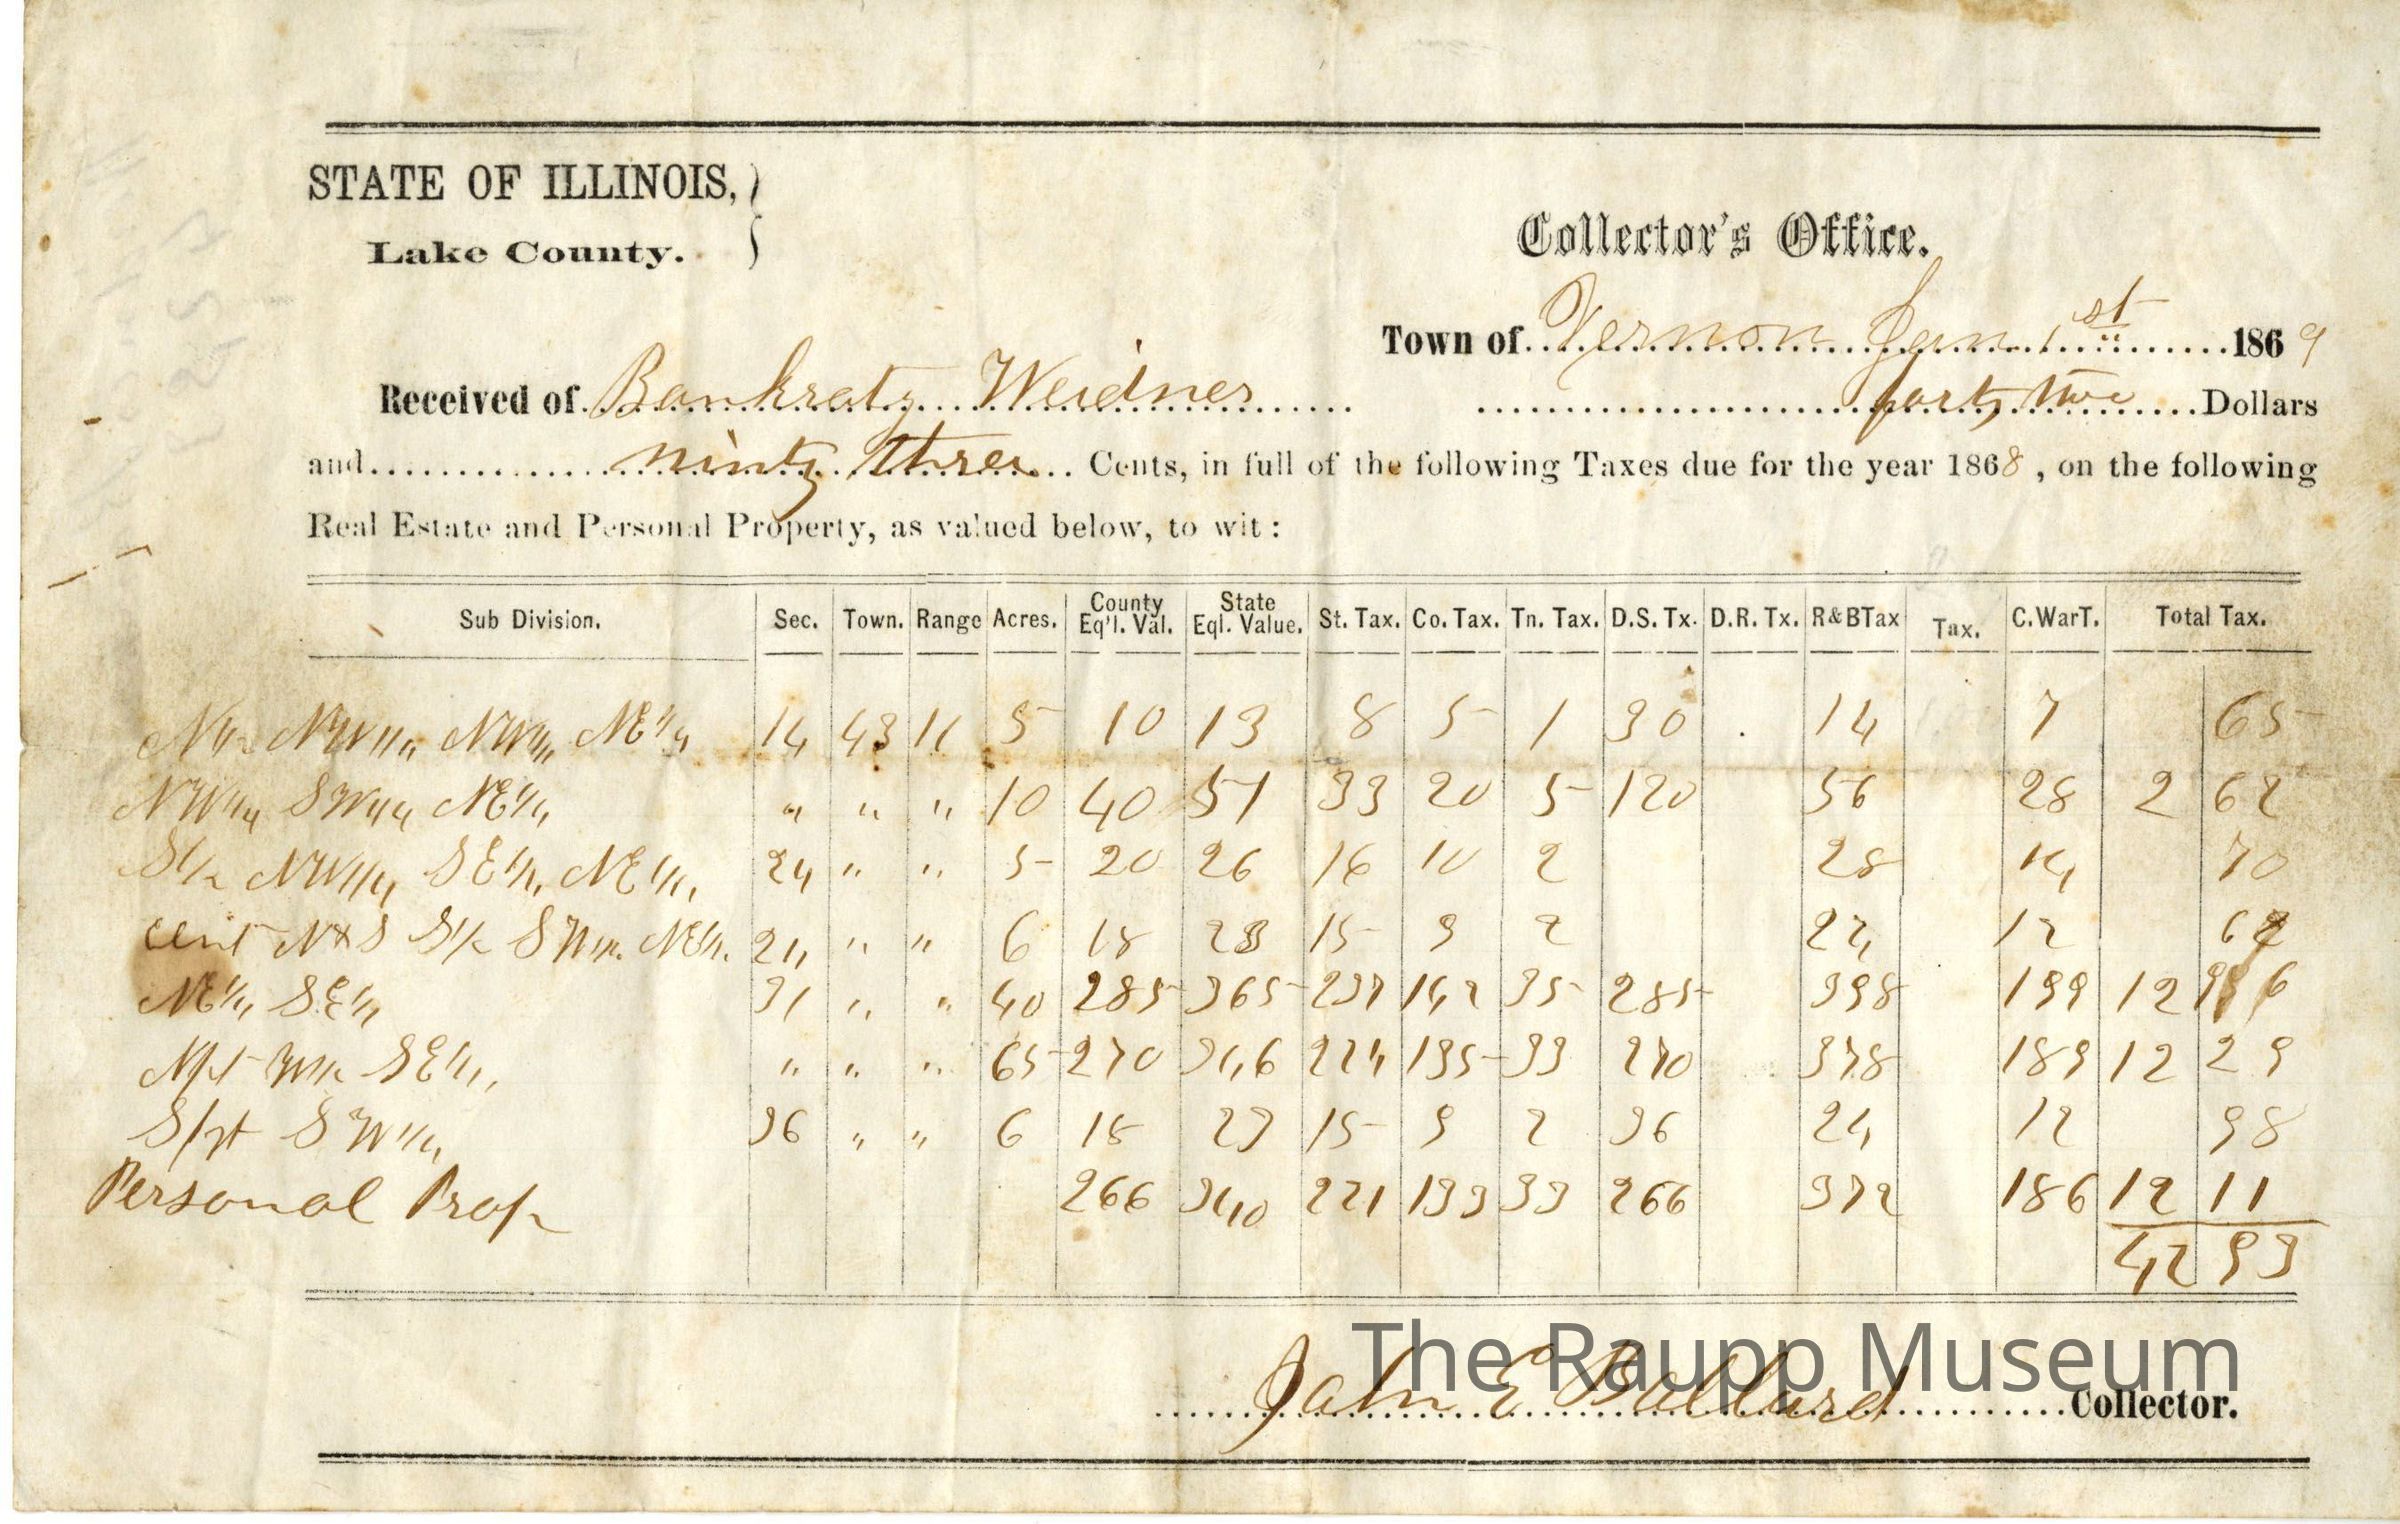 STATE OF ILLINOIS,
Lake County.
Collector's Office.
Town of Vernon Jan 1st 1869
Received of Bankratz Weidner forty two Dollars
and ninty three Cents, in full of the following Taxes due for the year 1868, on the following
Real Estate and Personal Property, as valued below, to wit:
Sub Division. Sec. Town. Range Acres. County Eq'l. Val. State Eql. Value. St. Tax. Co. Tax. Tn. Tax. D.S. Tx. D.R. Tx. R&BTax Tax. C.WarT. Total Tax.
N1/2 NW1/4 NW1/4 NE1/4 14 43 11 5 10 13 8 5 1 30 14 7 65
NW1/4 SW1/4 NE1/4 " " " 10 40 51 33 20 5 120 56 28 2 62
S1/2 NW1/4 SE1/4 NE1/4 24 " " 5 20 26 16 10 2 28 14 70
cent N&S S1/2 SW1/4 NE1/4 24 " " 6 18 23 15 9 2 22 12 62
NE1/4 SE1/4 31 " " 40 285 365 237 142 35 285 398 199 12 96
Npt W1/2 SE1/4 " " " 65 270 346 224 135 33 270 378 189 12 29
Spt SW1/4 36 " " 6 18 23 15 9 2 36 24 12 98
Personal Prop 266 340 221 133 33 266 372 186 12 11
42 93
John E Ballard Collector.
The Raupp Museum